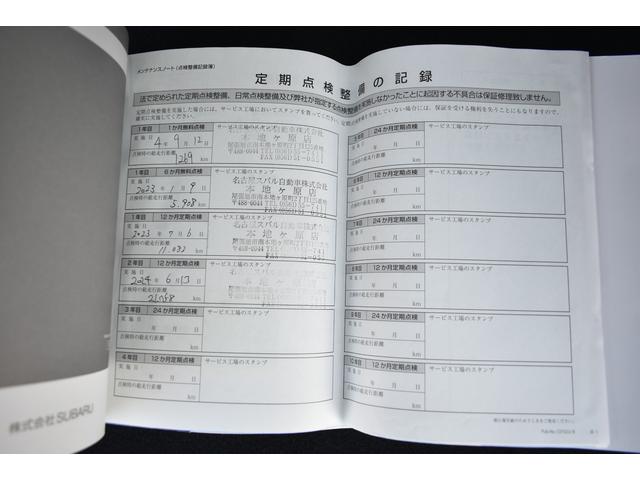 メンテナンスノート(点検整備記録簿)
定期点検整備の記録
法で定められた定期点検整備、日常点検整備及び弊社が指定する点検整備を実施しなかったことに起因する不具合は保証修理致しません。
定期点検整備を実施した場合には、サービス工場においてスタンプを貰ってください。定期点検整備を実施していない場合には、保証を受ける権利を失うことにもなりますので、
確実に実施してください。
1年目 1か月無料点検 サービス工場のスタンプ
実施日
4年9月12日
点検時の総走行距離
1269 km
本地ヶ原店
1年目 6か月無料点検 サービス工場のスタンプ
実施日
2023年1月9日
点検時の総走行距離
5,908 km
名古屋スバル自動車株式会社
本地ヶ原店
1年目 12か月定期点検 サービス工場のスタンプ
実施日
2023年7月6日
点検時の総走行距離
11,032 km
名古屋スバル自動車株式会社
本地ヶ原店
2年目 12か月定期点検 サービス工場のスタンプ
実施日
2024年6月13日
点検時の総走行距離
km
3年目 24か月定期点検 サービス工場のスタンプ
実施日
年 月 日
点検時の総走行距離
km
4年目 12か月定期点検 サービス工場のスタンプ
実施日
年 月 日
点検時の総走行距離
km
5年目 24か月定期点検 サービス工場のスタンプ
実施日
年 月 日
点検時の総走行距離
km
6年目 12か月定期点検 サービス工場のスタンプ
実施日
年 月 日
点検時の総走行距離
km
7年目 24か月定期点検 サービス工場のスタンプ
実施日
年 月 日
点検時の総走行距離
km
8年目 12か月定期点検 サービス工場のスタンプ
実施日
年 月 日
点検時の総走行距離
km
9年目 24か月定期点検 サービス工場のスタンプ
実施日
年 月 日
点検時の総走行距離
km
10年目 12か月定期点検 サービス工場のスタンプ
実施日
年 月 日
点検時の総走行距離
km
株式会社SUBARU